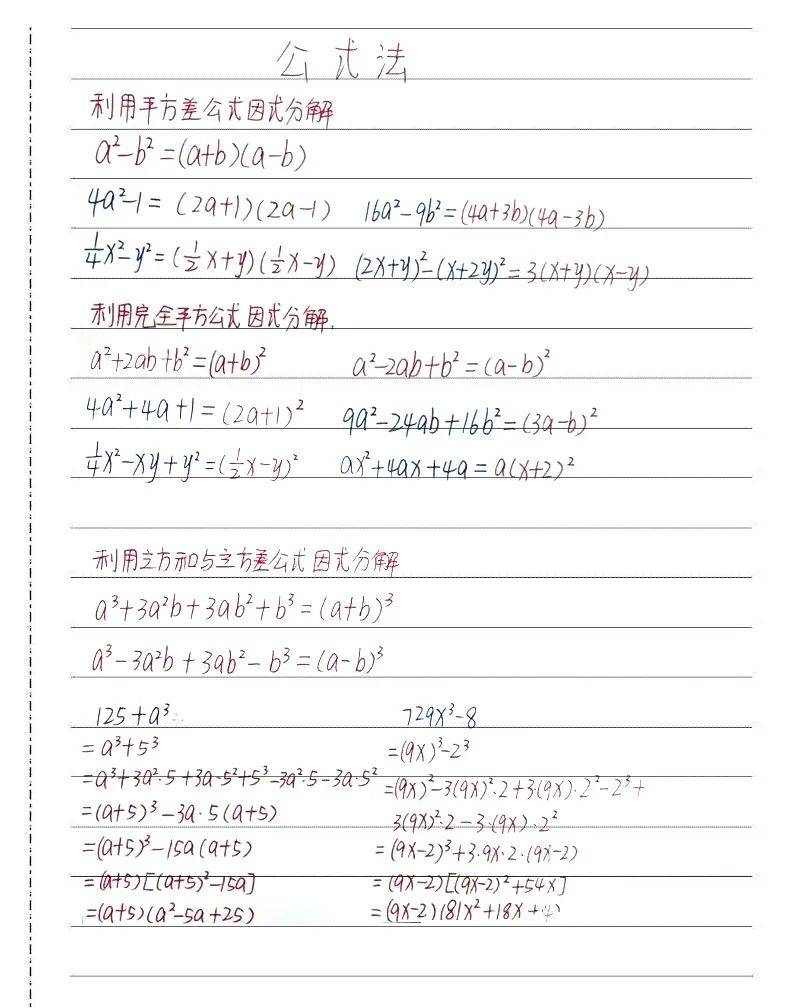 公式法
利用平方差公式因式分解
a²-b²=(a+b)(a-b)
4a²-1=(2a+1)(2a-1) 16a²-9b²=(4a+3b)(4a-3b)
¼x²-y²=(½x+y)(½x-y) (2x+y)²-(x+2y)²=3(x+y)(x-y)
利用完全平方公式因式分解.
a²+2ab+b²=(a+b)² a²-2ab+b²=(a-b)²
4a²+4a+1=(2a+1)² 9a²-24ab+16b²=(3a-b)²
¼x²-xy+y²=(½x-y)² ax²+4ax+4a=a(x+2)²
利用立方和与立方差公式因式分解
a³+3a²b+3ab²+b³=(a+b)³
a³-3a²b+3ab²-b³=(a-b)³
125+a³
=a³+5³
=a³+3a²·5+3a·5²+5³-3a²·5-3a·5²
=(a+5)³-3a·5(a+5)
=(a+5)³-15a(a+5)
=(a+5)[(a+5)²-15a]
=(a+5)(a²-5a+25)
729x³-8
=(9x)³-2³
=(9x)²-3(9x)²·2+3(9x)·2²-2³+
3(9x)²·2-3·(9x)·2²
=(9x-2)³+3·9x·2·(9x-2)
=(9x-2)[(9x-2)²+54x]
=(9x-2)(81x²+18x+4)